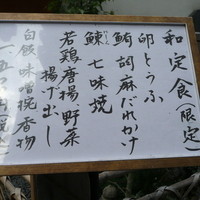 和定食（限定）
卵とうふ
鮪胡麻だれかけ
鰊七味焼
若鶏唐揚、野菜
揚げ出し
白飯 味噌椀 香物